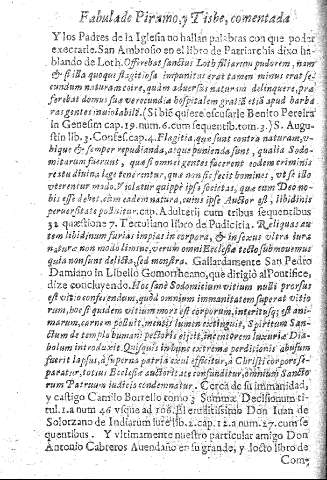 Fabula de Piramo, y Tisbe, comentada
Y los Padres de la Iglesia no hallan palabras con que poder
execrarle. San Ambrosio en el libro de Patriarchis dixo ha-
blando de Loth. Offerebat sanctus Loth filiarum pudorem, nam
& si illa quoque flagitiosa impuritas erat tamen minus erat se-
cundum naturam coire, quàm adversus naturam delinquere, præ
ferebat domus suæ verecundia hospitalem gratiã etiã apud barba
ras gentes inviolabilē. (Si biē quiere escusarle Benito Pereira
in Genesim cap. 19. num. 6. cum sequentib. tom. 3.) S. Augus-
tin lib. 3. Confess. cap. 4. Flagitia, que sunt contra naturam, u-
bique & semper repudianda, atque punienda sunt, qualia Sodo-
mitarum fuerunt, que si omnes gentes fecerent eodem criminis
reatu divina lege tenerentur, que non sic fecit homines, ut se illo
uterentur modo. Violatur quippè ipsa societas, que cum Deo no-
bis esse debet, cùm eadem natura, cuius ipse Auctor est, libidinis
perversitate polluitur. cap. Adulterij cum tribus sequentibus
32 quæstione 7. Tertuliano libro de Pudicitia. Reliquas au-
tem libidinum furias impias in corpora, & in sexus ultra iura
naturæ non modo limine, verum omni Ecclesiæ tecto submovemus
quia non sunt delicta, sed monstra. Gallardamente San Pedro
Damiano in Libello Gomorrheano, que dirigiò al Pontifice,
dize concluyendo. Hoc sanè Sodomicium vitium nulli prorsus
est vitio conferendum, quod omnium immanitatem superat vitio
rum, hoc siquidem vitium mors est corporum, interitus; est ani-
marum, carnem polluit, mentis lumen extinguit, Spiritum San-
ctum de templo humani pectoris eijcit, incentorem luxuriæ Dia-
bolum introducit. Quisquis
fuerit lapsus, à superna patria exul efficitur, à Christi corpore se-
paratur, totius Ecclesiæ auctoritate confunditur, omnium Sancto
rum Patrum iudicio condemnatur. Cerca de su immanidad,
y castigo Camilo Borrello tomo 3 Summæ Decisionum ti-
tul. 1. a num 46 usque ad 106. El eruditissimo Don Iuan de
Solorzano de Indiarum iure lib. 2. cap. 12. a num. 27. cum se
quentibus. Y ultimamente nuestro particular amigo Don
Antonio Cabreros Avendaño en su grande, y docto libro de
Com-